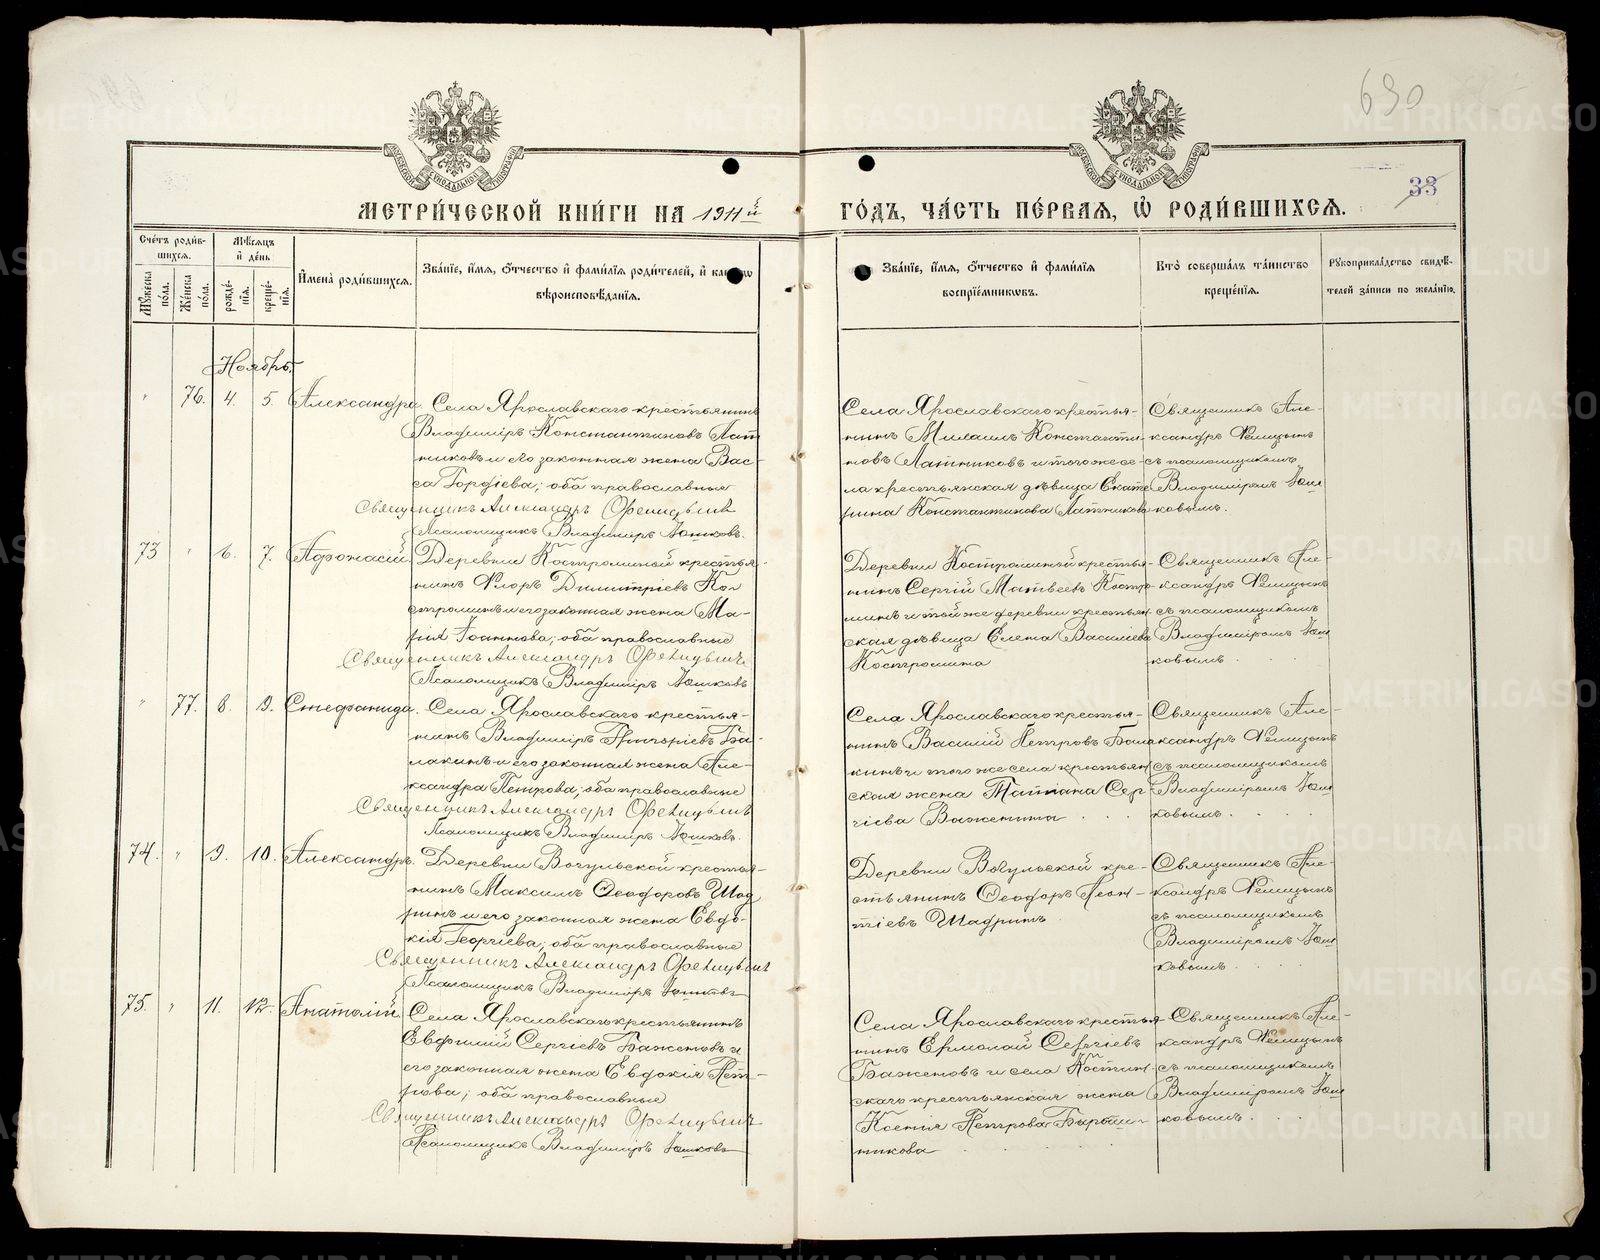 690
33
МЕТРИ́ЧЕСКОЙ КНИ́ГИ НА 1911й
ГО́ДЪ, ЧА́СТЬ ПЕ́РВАЯ, Ѡ РОДИ́ВШИХСЯ.
Сче́тъ роди́в-
шихся.
Мꙋ́жеска по́ла.
Же́нска по́ла.
Мѣ́сяцъ
и де́нь
рожде́-
нїя.
креще́-
нїя.
И҆мена̀ роди́вшихся.
Зва́нїе, и҆́мя, ѻ҆́тчество и҆ фами́лїя роди́телей, и҆ како́гѡ
вѣроисповѣ́данїя.
Зва́нїе, и҆́мя, ѻ҆́тчество и҆ фами́лїя
воспрїе́мникѡвъ.
Кто̀ соверша́лъ та́инство
креще́нїя.
Рꙋкоприкла́дство свидѣ́-
телей за́писи по жела́нїю.
Ноябрь.
" 76. 4. 5. Александра
Села Ярославскаго крестьянинъ
Владимiръ Константиновъ Лат
никовъ и его законная жена Вас-
са Гордiева; оба православные
Священникъ Александръ Филицынъ
Псаломщикъ Владимiръ Юшковъ.
Села Ярославскаго крестья-
нинъ Михаилъ Константи-
новъ Латниковъ и того же се-
ла крестьянская дѣвица Екате
рина Константинова Латникова
Священникъ Але-
ксандръ Филицынъ
съ псаломщикомъ
Владимiромъ Юш
ковымъ.
73 " 6. 7. Афонасiй
Деревни Костроминой крестья-
нинъ Флоръ Димитрiевъ Кос
троминъ и его законная жена Ма-
рiя Iоаннова; оба православные
Священникъ Александръ Филицынъ
Псаломщикъ Владимiръ Юшковъ
Деревни Костроминой крестья-
нинъ Сергiй Матвеевъ Костро
минъ и той же деревни крестьян
ская дѣвица Елена Василiева
Костромина
Священникъ Але-
ксандръ Филицынъ
съ псаломщикомъ
Владимiромъ Юш
ковымъ.
" 77. 8. 9. Стефанида.
Села Ярославскаго крестья-
нинъ Владимiръ Григорiевъ Ба-
лакинъ и его законная жена Але-
ксандра Петрова; оба православные
Священникъ Александръ Филицынъ
Псаломщикъ Владимiръ Юшковъ.
Села Ярославскаго крестья-
нинъ Василiй Петровъ Бала
кинъ и того же села крестьян
ская жена Татiана Сер-
гiева Важенина
Священникъ Але-
ксандръ Филицынъ
съ псаломщикомъ
Владимiромъ Юш
ковымъ.
74. " 9. 10. Александръ.
Деревни Вогульской крестья-
нинъ Максимъ Феодоровъ Шад
ринъ и его законная жена Евдо-
кiя Георгiева; оба православные
Священникъ Александръ Филицынъ
Псаломщикъ Владимiръ Юшковъ
Деревни Вогульской кре-
стьянинъ Феодоръ Леон-
тiевъ Шадринъ
Священникъ Але-
ксандръ Филицынъ
съ псаломщикомъ
Владимiромъ Юш
ковымъ.
75. " 11. 12. Анатолiй
Села Ярославскаго крестьянинъ
Евфимiй Сергiевъ Баженовъ и
его законная жена Евдокiя Пет-
рова; оба православные
Священникъ Александръ Филицынъ
Псаломщикъ Владимiръ Юшковъ
Села Ярославскаго крестья-
нинъ Ермолай Сергiевъ
Баженовъ и села Костин-
скаго крестьянская жена
Ксенiя Петрова
Священникъ Але-
ксандръ Филицынъ
съ псаломщикомъ
Владимiромъ Юш
ковымъ.
METRIKI.GASO-URAL.RU